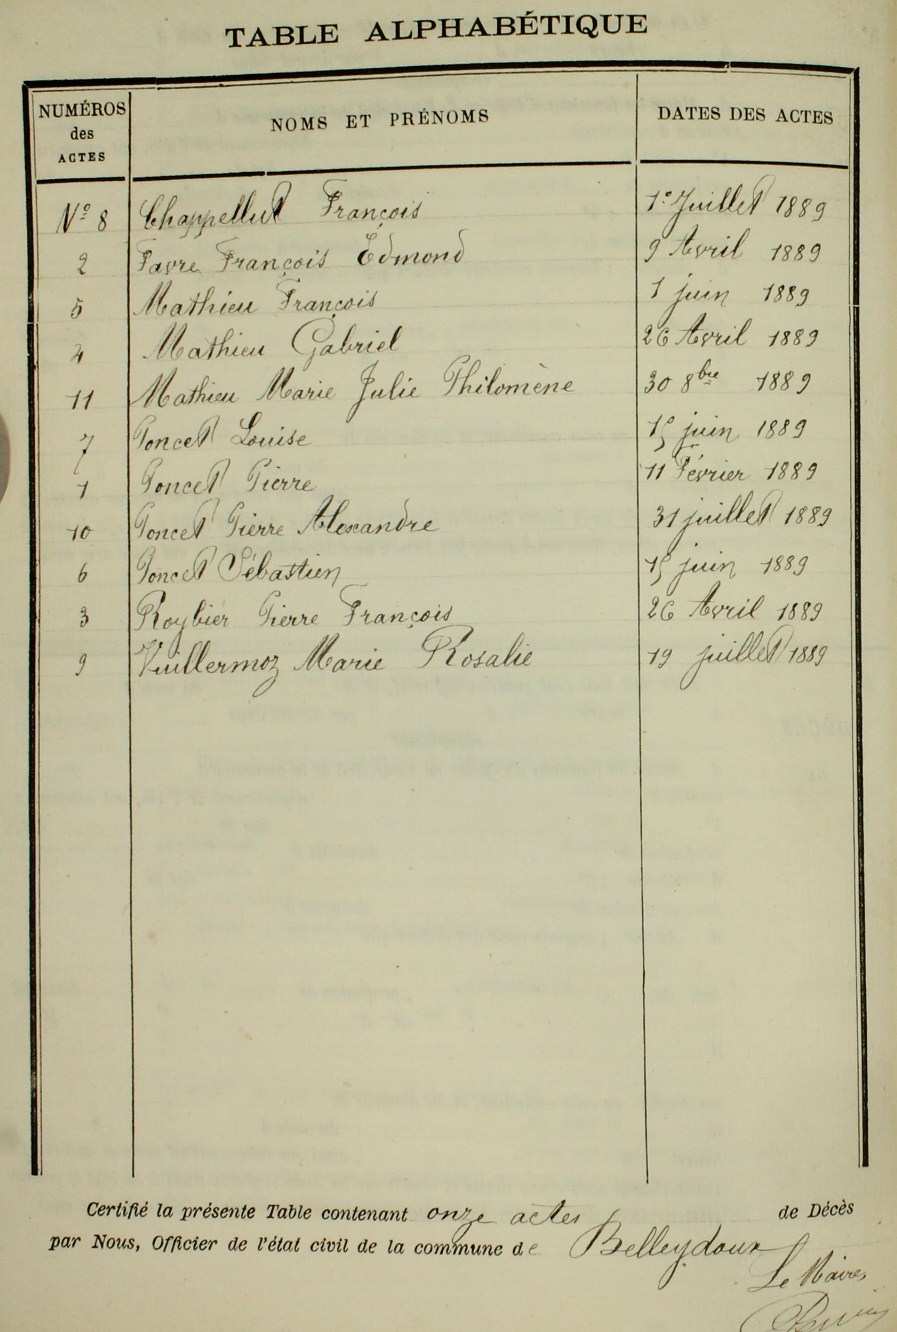 TABLE ALPHABÉTIQUE
NUMÉROS des ACTES NOMS ET PRÉNOMS DATES DES ACTES
Nº 8 Chappellut François 1er Juillet 1889
2 Favre François Edmond 9 Avril 1889
5 Mathieu François 1 juin 1889
4 Mathieu Gabriel 26 Avril 1889
11 Mathieu Marie Julie Philomène 30 8bre 1889
7 Poncet Louise 15 juin 1889
1 Poncet Pierre 11 Février 1889
10 Poncet Pierre Alexandre 31 juillet 1889
6 Poncet Sébastien 15 juin 1889
3 Roybier Pierre François 26 Avril 1889
9 Vuillermoz Marie Rosalie 19 juillet 1889
Certifié la présente Table contenant onze actes de Décès
par Nous, Officier de l'état civil de la commune de Belleydoux
Le Maire,